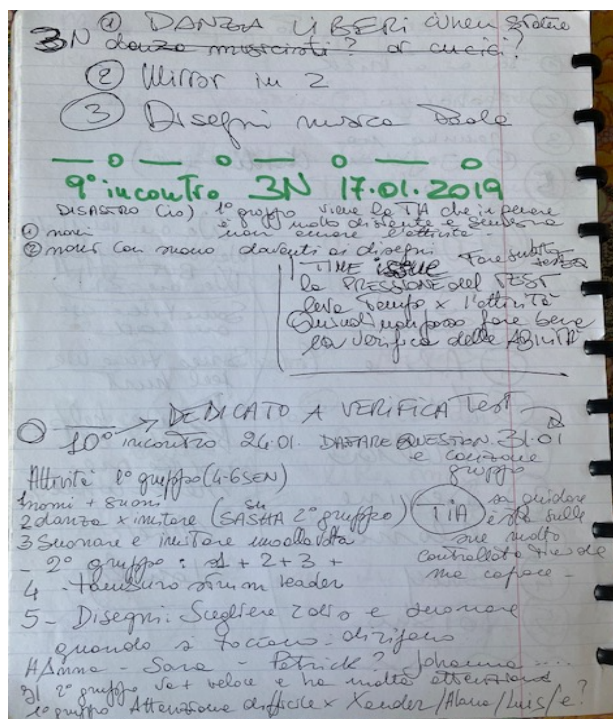 ① DANZA LIBERI when
3N danza musicisti? or cucici?
② Mirror in 2
③ Disegni musica
9° incontro 3N 17.01.2019
DISASTRO (io) 1° gruppo viene la TIA che in genere
① nomi è molto distante e sembra
non amare l'attività
② nomi con suono davanti ai disegni
TIME ISSUE Fare subito test
la PRESSIONE del TEST
leva tempo x l'attività
Quindi non posso fare bene
la verifica delle ABILITÀ
DEDICATO A VERIFICA Test
10° incontro 24.01. DA FARE QUESTION. 31.01
e canzone
gruppo
Attività 1° gruppo (4-6 SEN)
1 nomi + suoni
2 danza x imitare (SASHA 2° gruppo) TIA sa guidare
è sta sulle
3 Suonare e imitare uno alla volta sue molto
controllata
- 2° gruppo: 1 + 2 + 3 + ma capace -
4 - tamburo strum leader
5 - Disegni: Scegliere e suonare
quando si toccano: dirigono
Anna - Sara - Patrick? Johanna ....
Il 2° gruppo va + veloce e ha molta attenzione
1° gruppo Attenzione difficile x Xander/Alana/Luis/e?